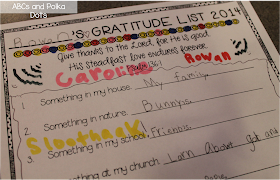 ABCs and Polka
Dots
'S GRATITUDE LIST 2014
Give thanks to the Lord, for He is good
His steadfast love endures forever.
Caroline Psalm 136:1 Rowan
1. Something in my house My family
2. Something in nature Bunnys
Sloothank
3. Something in my school Friends
ething at my church Larn About god and